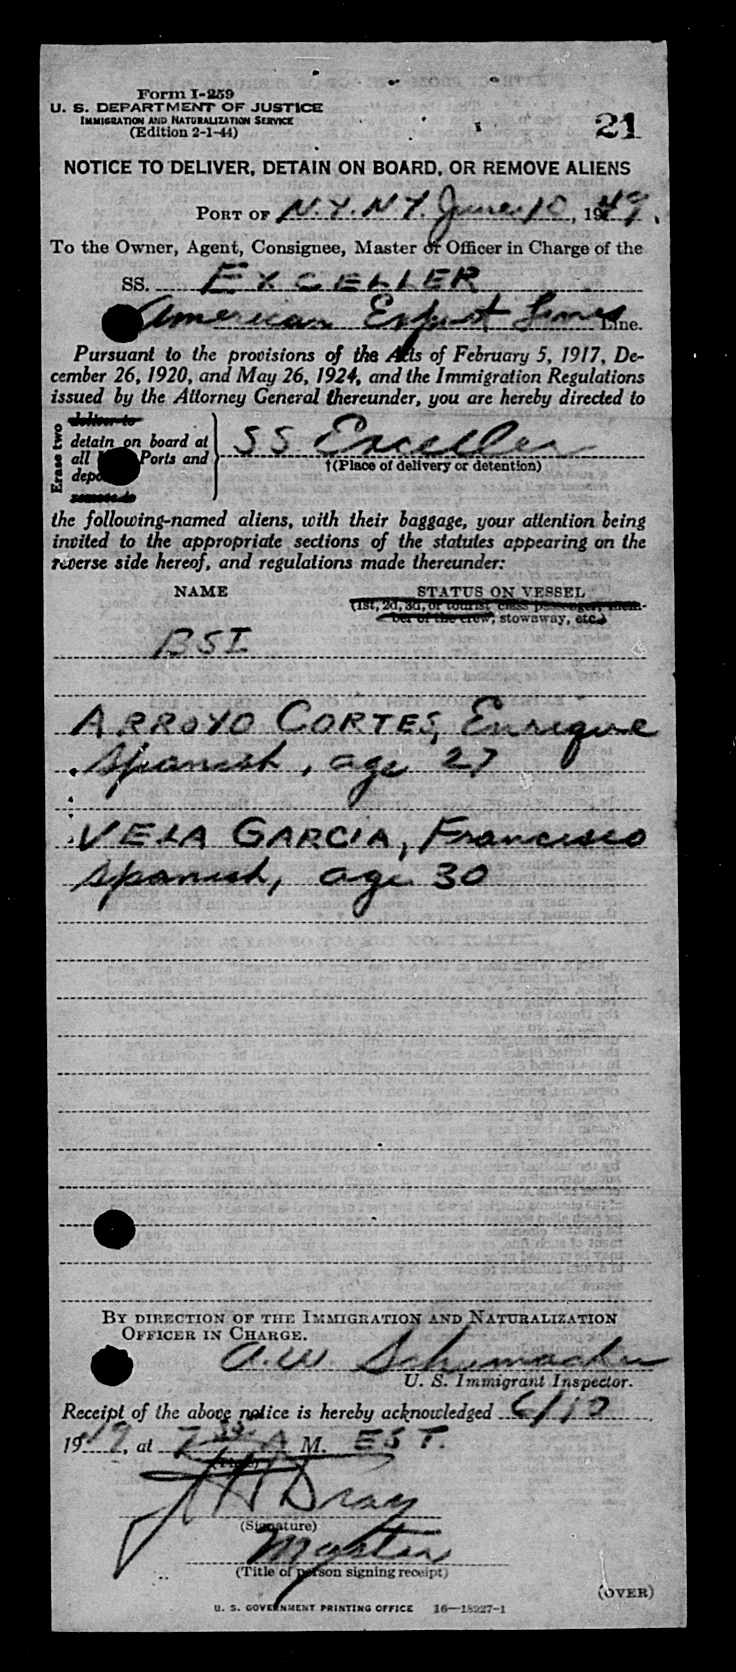 Form I-259
U. S. DEPARTMENT OF JUSTICE
IMMIGRATION AND NATURALIZATION SERVICE
(Edition 2-1-44)
21
NOTICE TO DELIVER, DETAIN ON BOARD, OR REMOVE ALIENS
PORT OF N.Y. N.Y. June 10, 1949.
To the Owner, Agent, Consignee, Master or Officer in Charge of the
SS. EXCELLER
American Export Lines Line.
Pursuant to the provisions of the Acts of February 5, 1917, De-
cember 26, 1920, and May 26, 1924, and the Immigration Regulations
issued by the Attorney General thereunder, you are hereby directed to
Erase two
deliver to
detain on board at
all Ports and
remove to
SS Exceller
†(Place of delivery or detention)
the following-named aliens, with their baggage, your attention being
invited to the appropriate sections of the statutes appearing on the
reverse side hereof, and regulations made thereunder:
NAME STATUS ON VESSEL
(1st, 2d, 3d, or tourist class passenger, mem-
ber of the crew, stowaway, etc.)
BSI
ARROYO CORTES, Enrique
Spanish, age 27
VELA GARCIA, Francisco
Spanish, age 30
BY DIRECTION OF THE IMMIGRATION AND NATURALIZATION
OFFICER IN CHARGE.
A.W. Schumacher
U. S. Immigrant Inspector.
Receipt of the above notice is hereby acknowledged 6/10
1949, at 7 A M. EST.
(Time)
Dray
(Signature)
Master
(Title of person signing receipt)
(OVER)
U. S. GOVERNMENT PRINTING OFFICE 16—18227-1